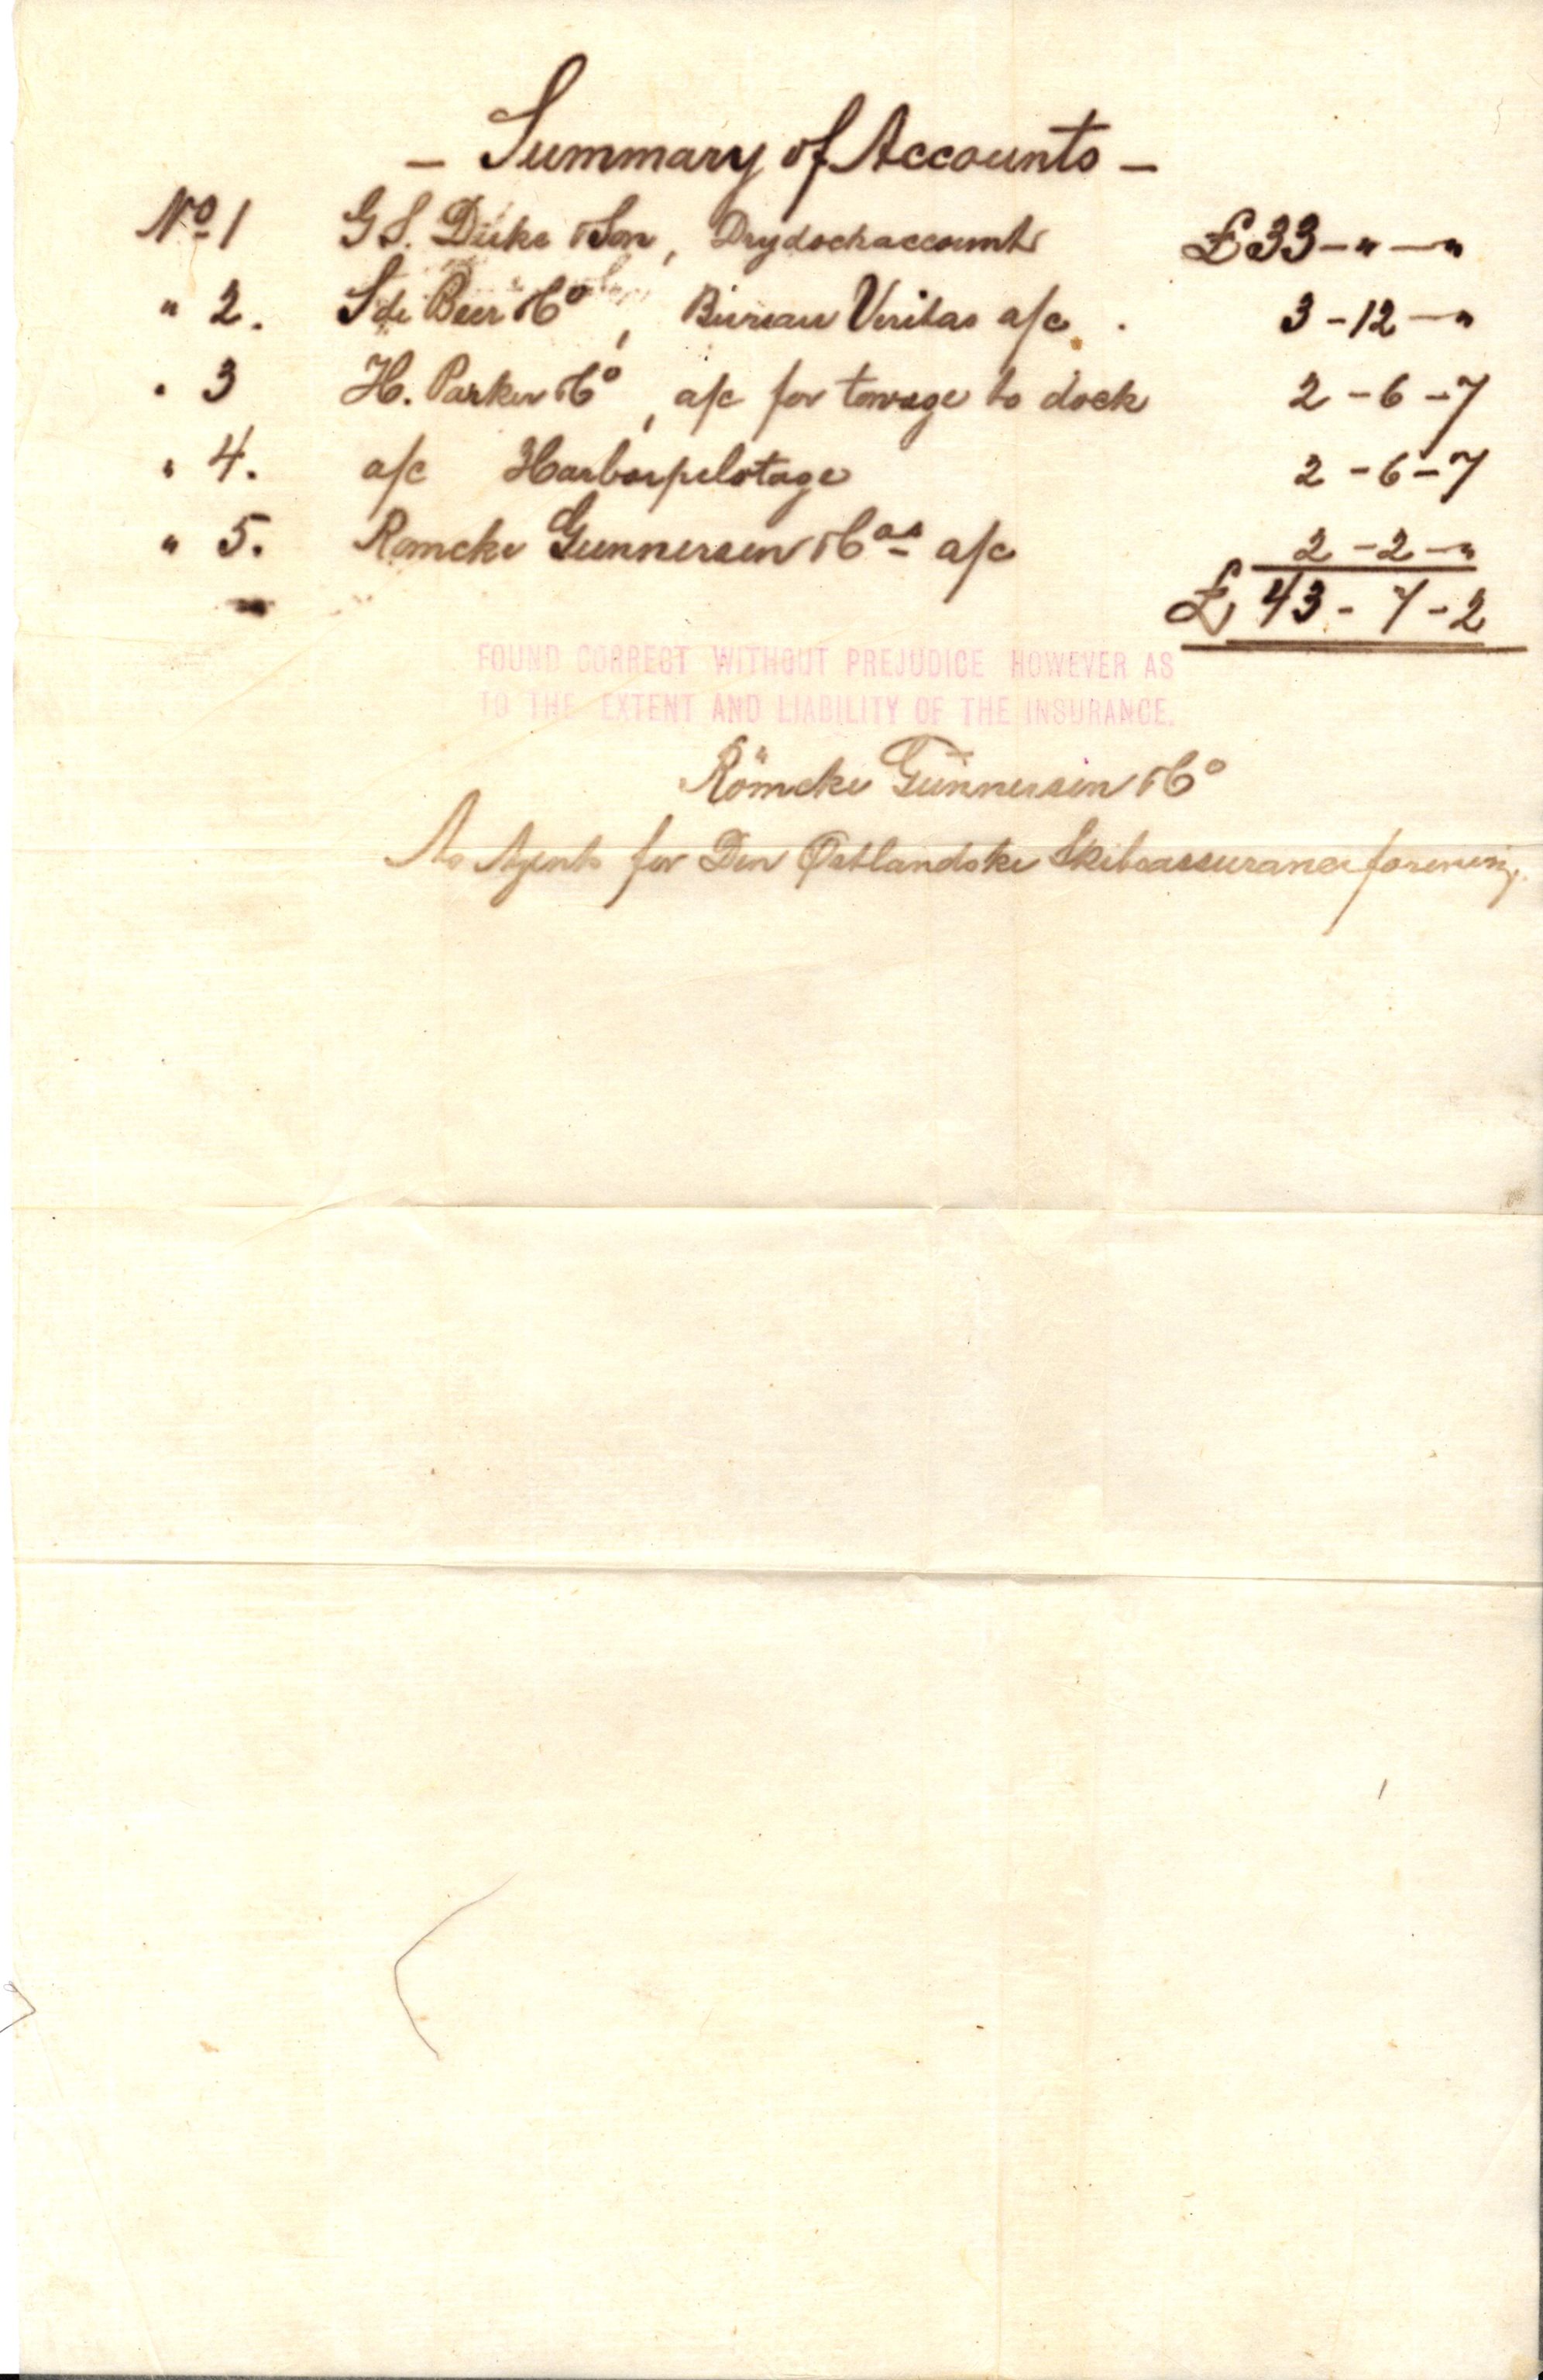 - Summary of Accounts -
No 1 G S. Duke & Son, Drydockaccount £33 - " - "
" 2. S de Beer & Co, Bureau Veritas a/c . 3 - 12 - "
" 3 H. Parker & Co, a/c for towage to dock 2 - 6 - 7
" 4. a/c Harborpilotage 2 - 6 - 7
" 5. Romcke Gunnersen & Co's a/c 2 - 2 - "
£ 43 - 7 - 2
FOUND CORRECT WITHOUT PREJUDICE HOWEVER AS
TO THE EXTENT AND LIABILITY OF THE INSURANCE.
Römcke Gunnersen & Co
As Agents for Den Østlandske Skibsassuranceforening.